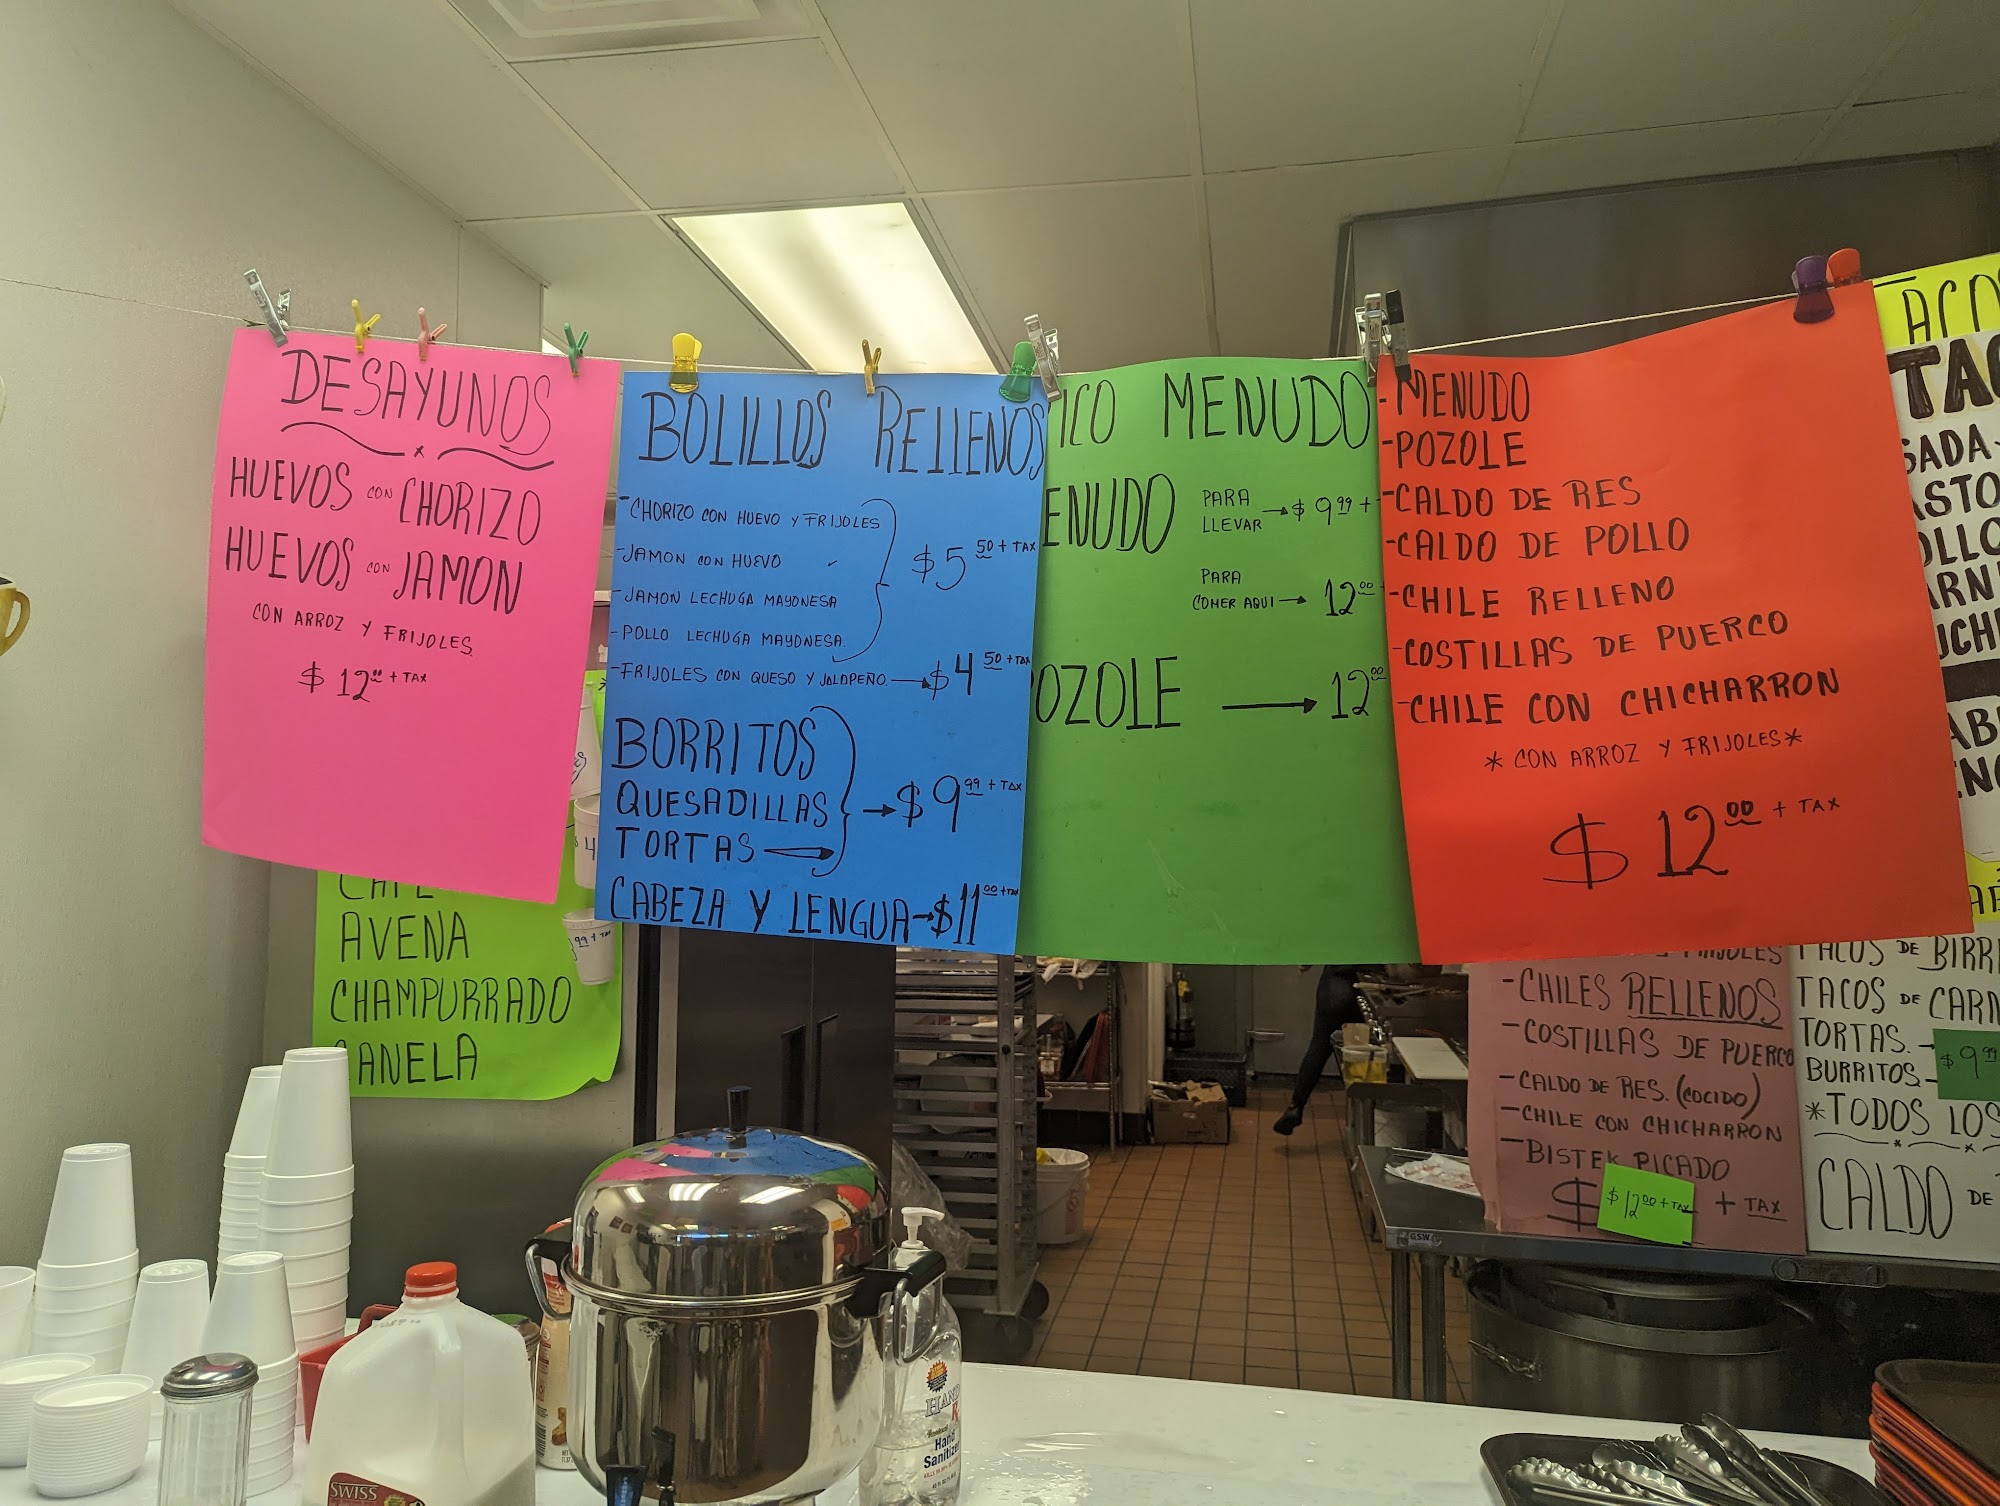 DESAYUNOS
HUEVOS CON CHORIZO
HUEVOS CON JAMON
CON ARROZ Y FRIJOLES.
$12.00 + TAX
AVENA
CHAMPURRADO
CANELA
99 + TAX
BOLILLOS RELLENOS
-CHORIZO CON HUEVO Y FRIJOLES
-JAMON CON HUEVO
-JAMON LECHUGA MAYONESA
-POLLO LECHUGA MAYONESA.
$5 50 + TAX
-FRIJOLES CON QUESO Y JALAPEÑO. → $4 50 + TAX
BORRITOS
QUESADILLAS
TORTAS
→ $9 99 + TAX
CABEZA Y LENGUA → $11 00 + TAX
ICO MENUDO
ENUDO
PARA
LLEVAR → $9 99 +
PARA
COMER AQUI → 12 00
POZOLE → 12 00
-MENUDO
-POZOLE
-CALDO DE RES
-CALDO DE POLLO
-CHILE RELLENO
-COSTILLAS DE PUERCO
-CHILE CON CHICHARRON
*CON ARROZ Y FRIJOLES*
$12 00 + TAX
-CHILES RELLENOS
-COSTILLAS DE PUERCO
-CALDO DE RES. (COCIDO)
-CHILE CON CHICHARRON
-BISTEK PICADO
$ $12 00 + TAX + TAX
TACOS DE BIRRI
TACOS DE CARN
TORTAS.
BURRITOS
$9 99
*TODOS LOS
CALDO DE
ACO
TAC
SADA
ASTO
OLLO
ARNI
UCHE
SWISS
HAND
Hand
Sanitizer
GSW